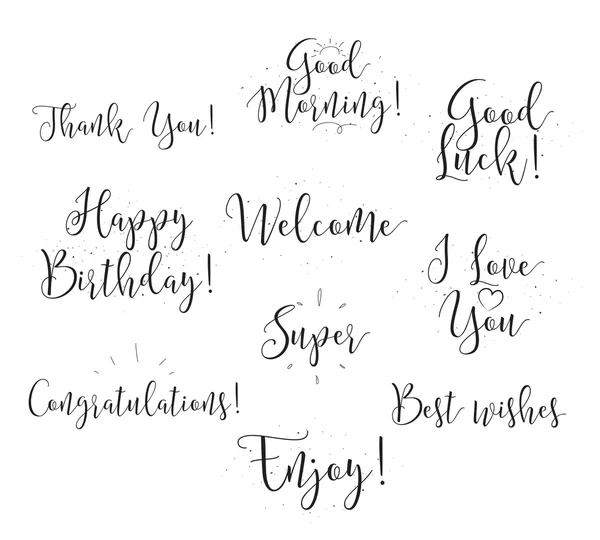 Good
Morning!
Thank You!
Good
Luck!
Happy
Birthday!
Welcome
I Love
You
Super
Congratulations!
Best wishes
Enjoy!